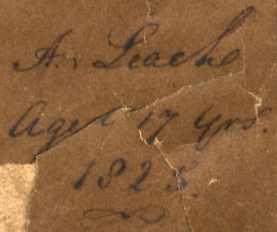 A. Leache
Aged 17 yrs.
1825.